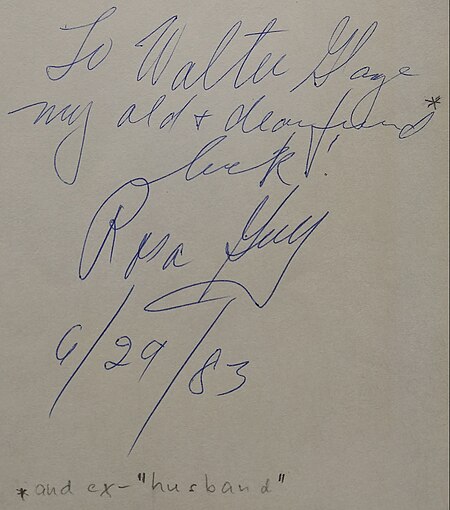 To Walter Gage
my old + dear friend *
luck!
Rosa Guy
6/29/83
*and ex-"husband"